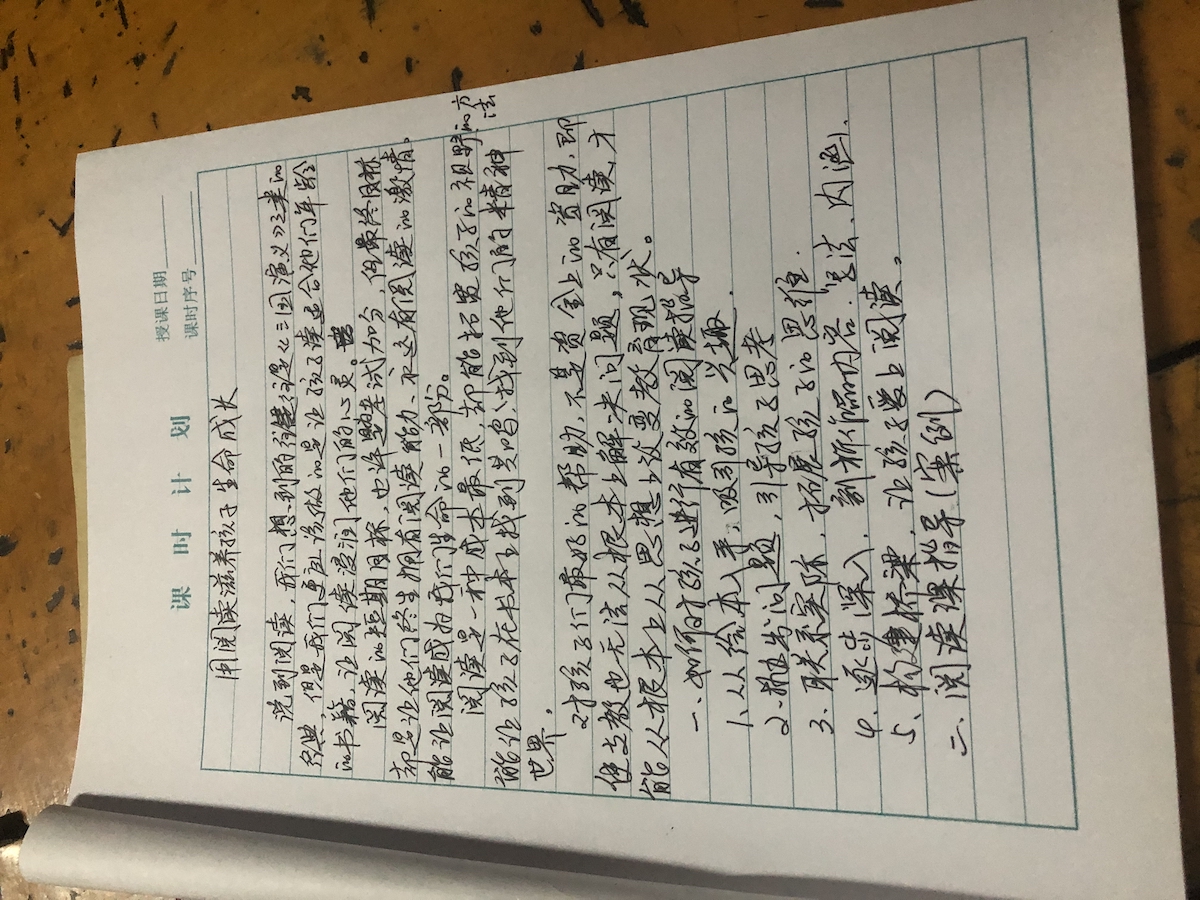 课时计划
授课日期
课时序号
用阅读滋养孩子生命成长
说到阅读，我们想到的往往是《三国演义》之类的
经典，但是我们更应该做的是让孩子读适合他们年龄
的书籍，让阅读浸润他们的心灵。
阅读的短期目标，也许是考试加分，但最终目标
却是让他们终生拥有阅读能力、永远有阅读的激情。
能让阅读成为我们生命的一部份。
阅读是一种成本最低，却能拓宽孩子的视野的方法
能让孩子在书本上找到共鸣，找到他们的精神
世界，
对孩子们最好的帮助，不是资金上的资助，即
使支教也无法从根本上解决问题，只有阅读，才
能从根本上从思想上改变教育现状。
一、如何对孩子进行有效的阅读指导
1、从绘本入手，吸引孩的兴趣．
2、抛出问题，引导孩子思考
3、联系实际，拓展孩子的思维．
4、逐步深入，剖析作品内容．写法、内涵．
5、构建桥梁，让孩子爱上阅读。
二、阅读课指导（案例）